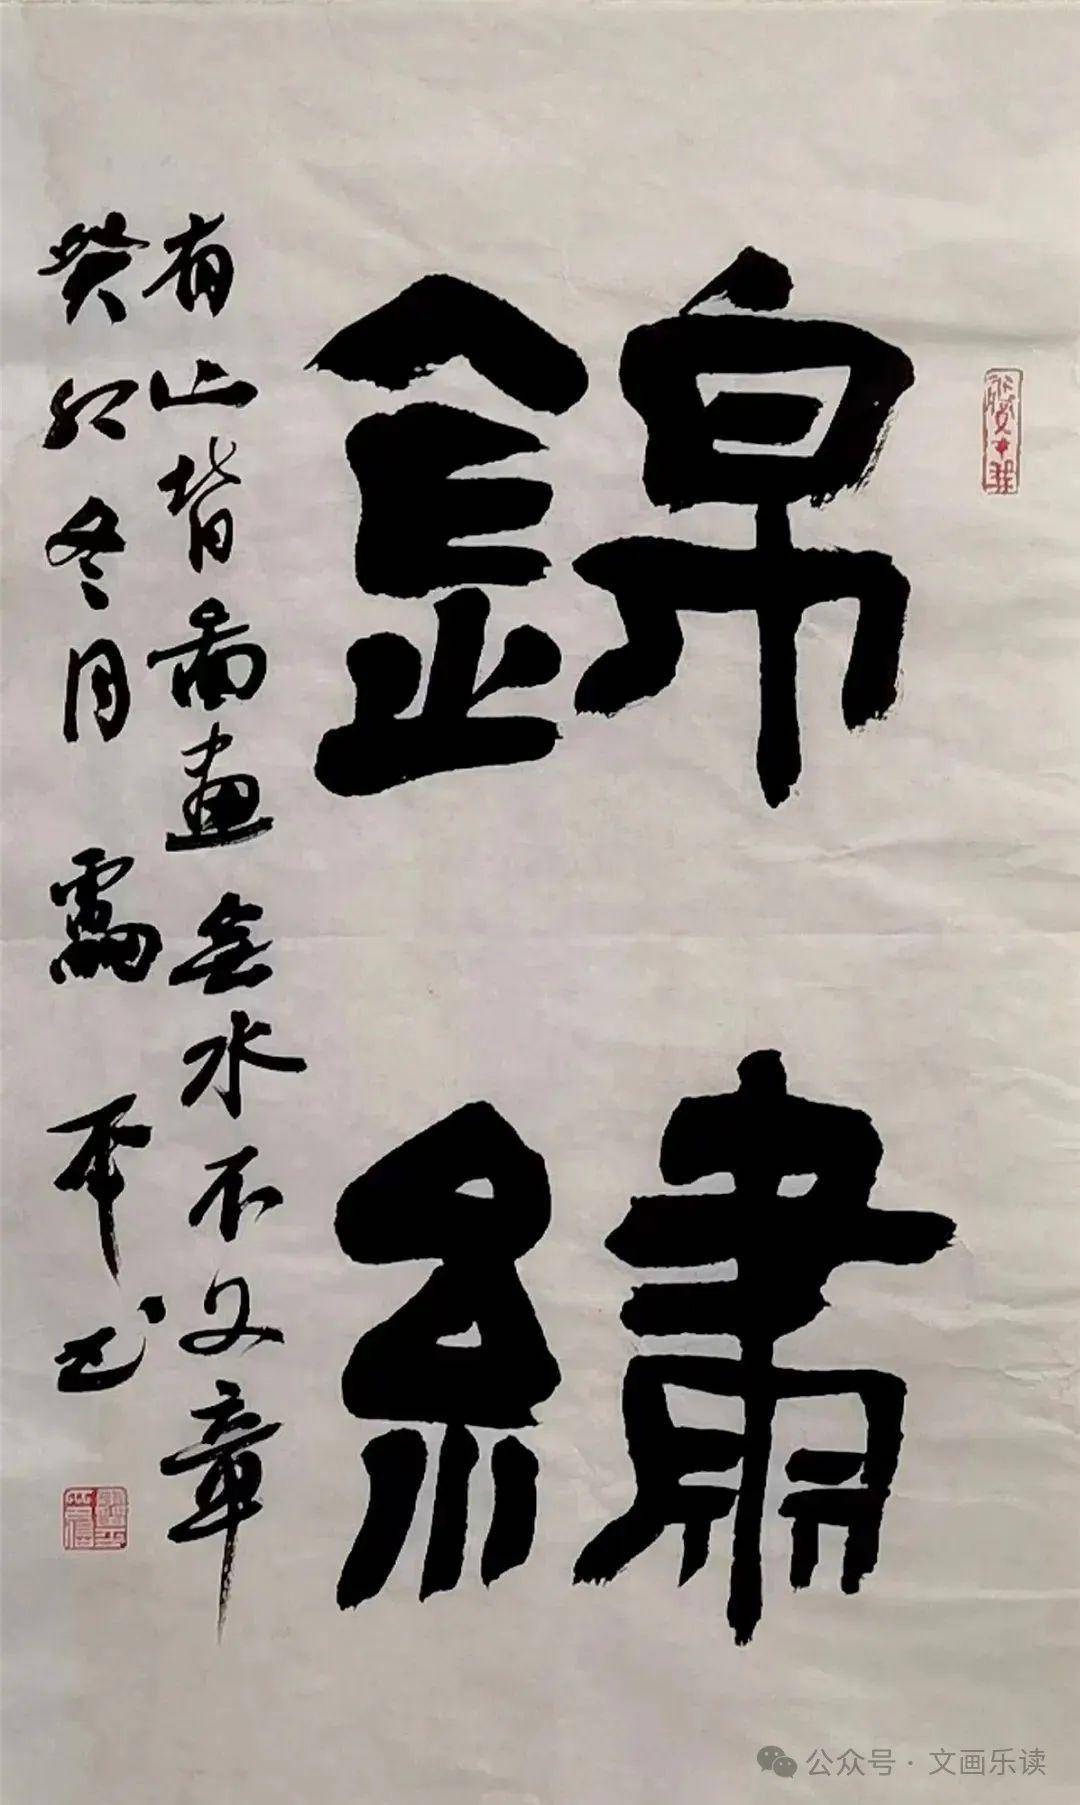 錦繡
有山皆圖畫無水不文章
癸卯冬月
公众号·文画乐读